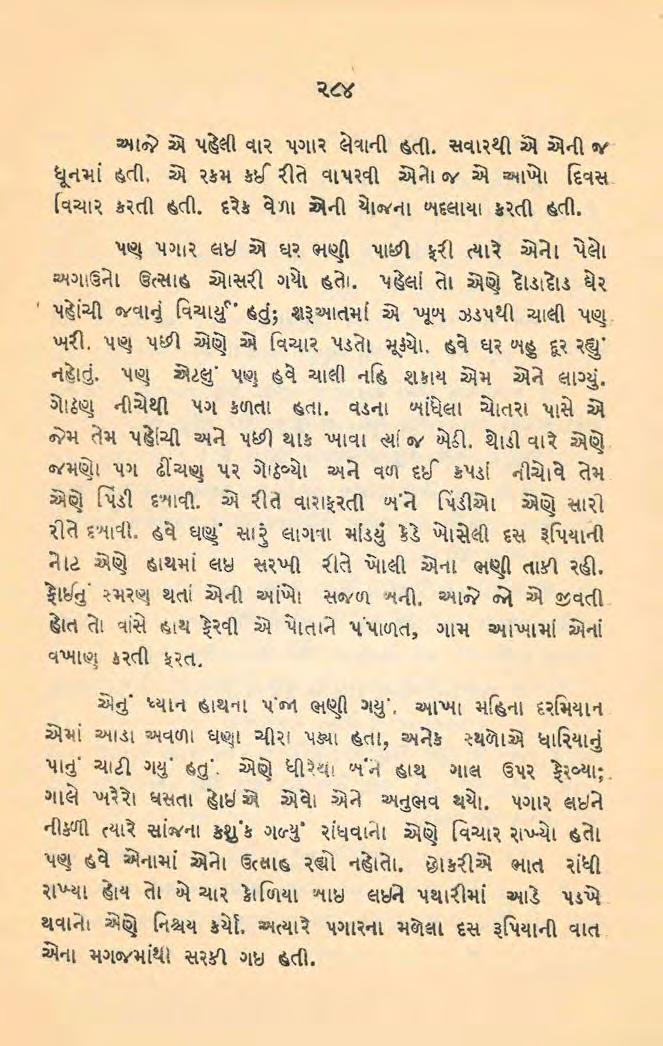 ૨૮૪
આજે એ પહેલી વાર પગાર લેવાની હતી. સવારથી એ એની જ
ધૂનમાં હતી. એ રકમ કઈ રીતે વાપરવી એનો જ એ આખો દિવસ
વિચાર કરતી હતી. દરેક વેળા એની યોજના બદલાયા કરતી હતી.
પણ પગાર લઈ એ ઘર ભણી પાછી ફરી ત્યારે એનો પેલો
અગાઉનો ઉત્સાહ ઓસરી ગયો હતો. પહેલાં તો એણે દોડાદોડ ઘેર
પહોંચી જવાનું વિચાર્યું હતું; શરૂઆતમાં એ ખૂબ ઝડપથી ચાલી પણ
ખરી. પણ પછી એણે એ વિચાર પડતો મૂક્યો. હવે ઘર બહુ દૂર રહ્યું
નહોતું. પણ એટલું પણ હવે ચાલી નહિ શકાય એમ એને લાગ્યું.
ગોઠણ નીચેથી પગ કળતા હતા. વડના બાંધેલા ચોતરા પાસે એ
જેમ તેમ પહોંચી અને પછી થાક ખાવા ત્યાં જ બેઠી. થોડી વારે એણે
જમણો પગ ઢીંચણ પર ગોઠવ્યો અને વળ દઈ કપડાં નીચોવે તેમ
એણે પિંડી દબાવી. એ રીતે વારાફરતી બંને પિંડીઓ એણે સારી
રીતે દબાવી. હવે ઘણું સારું લાગવા માંડયું કેડે ખોસેલી દસ રૂપિયાની
નોટ એણે હાથમાં લઇ સરખી રીતે ખોલી એના ભણી તાકી રહી.
કોઈનું સ્મરણ થતાં એની આંખો સજળ બની. આજે જો એ જીવતી
હોત તો વાંસે હાથ ફેરવી એ પોતાને પંપાળત, ગામ આખામાં એનાં
વખાણ કરતી ફરત.
એનું ધ્યાન હાથના પંજા ભણી ગયું. આખા મહિના દરમિયાન
એમાં આડા અવળા ઘણા ચીરા પડ્યા હતા, અનેક સ્થળોએ ધારિયાનું
પાનું ચાટી ગયું હતું. એણે ધીરેથી બંને હાથ ગાલ ઉપર ફેરવ્યા;
ગાલે ખરેરો ઘસતા હોઈએ એવો એને અનુભવ થયો. પગાર લઇને
નીકળી ત્યારે સાંજના કશુંક ગળ્યું રાંધવાનો એણે વિચાર રાખ્યો હતો
પણ હવે એનામાં એનો ઉત્સાહ રહ્યો નહોતો. છોકરીએ ભાત રાંધી
રાખ્યા હોય તો બે ચાર કોળિયા ખાઇ લઇને પથારીમાં આડે પડખે
થવાનો એણે નિશ્ચય કર્યો. અત્યારે પગારના મળેલા દસ રૂપિયાની વાત
એના મગજમાંથી સરકી ગઇ હતી.